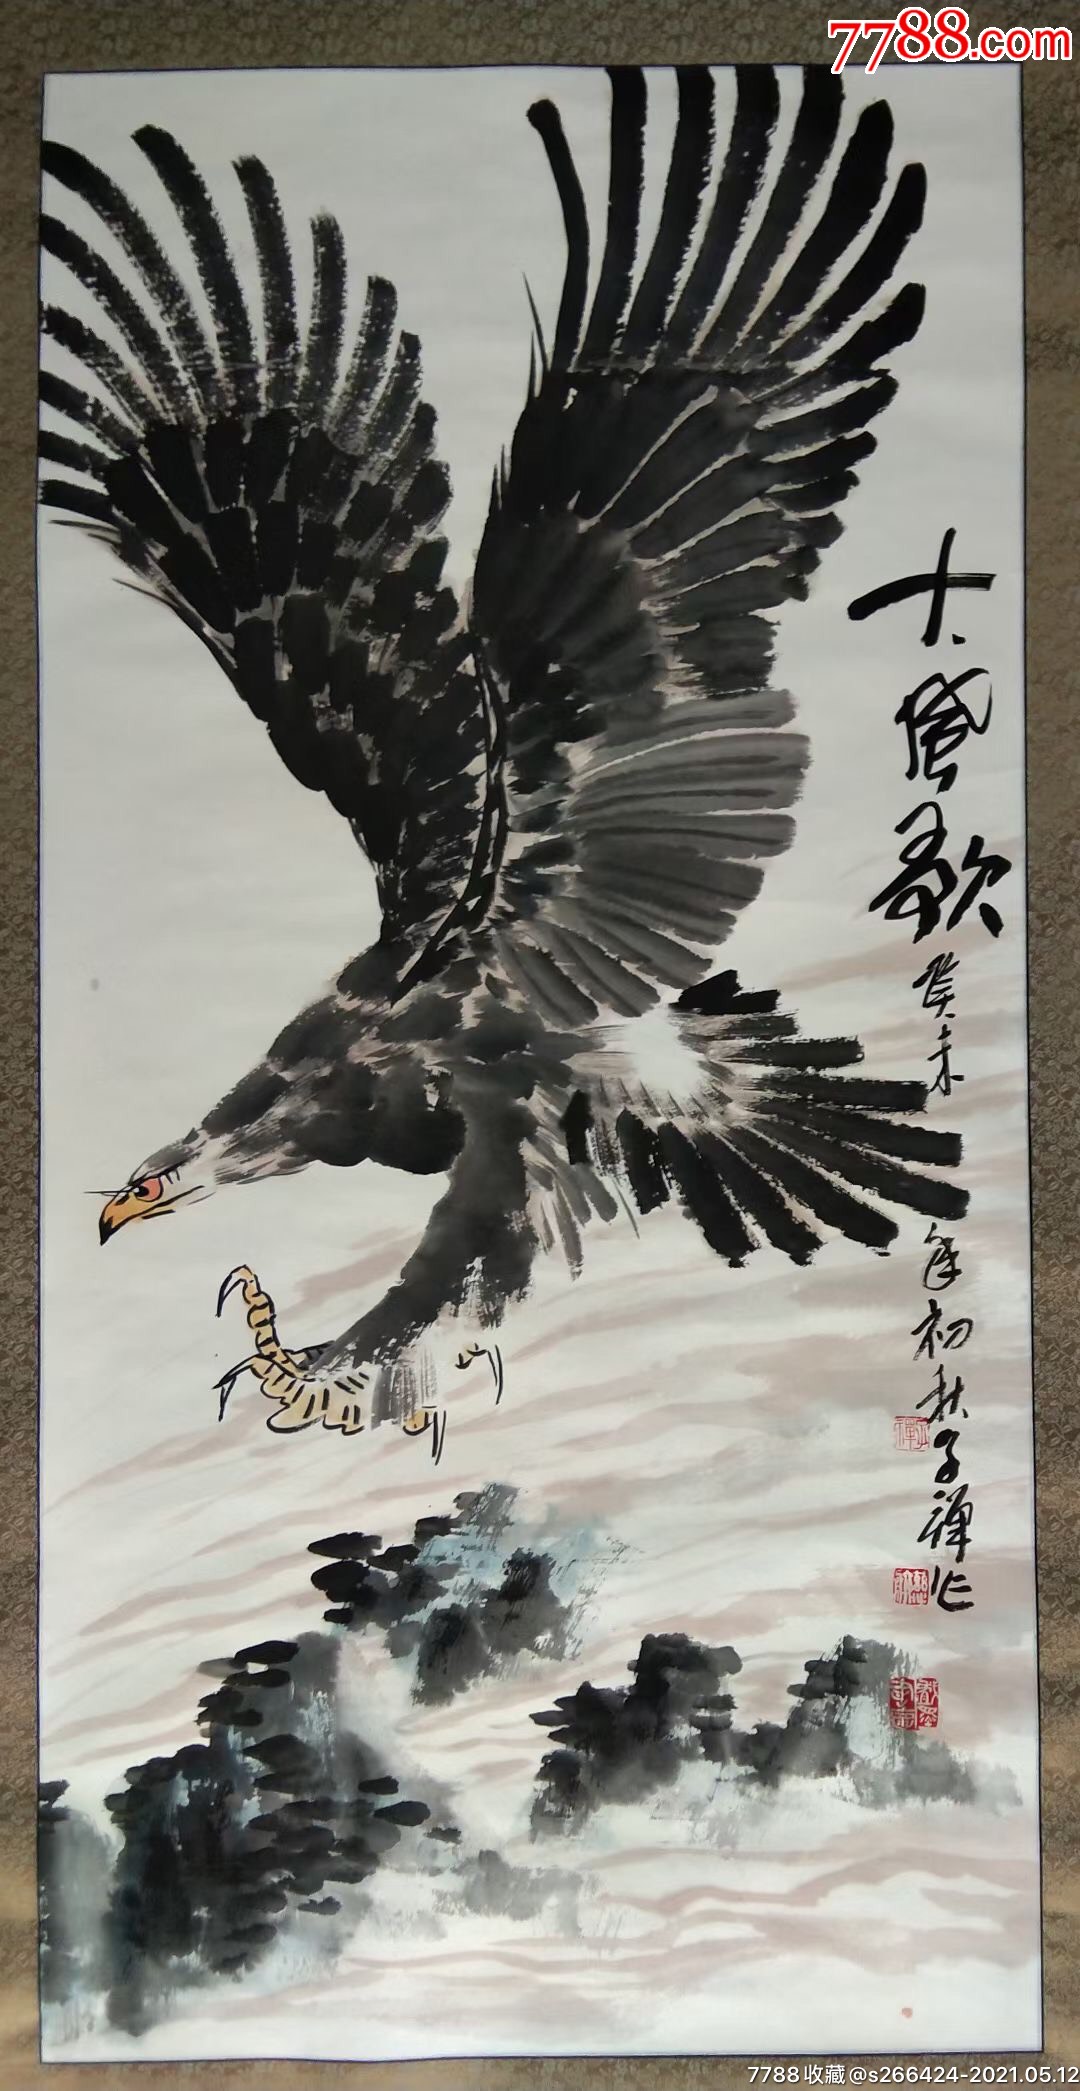 7788.com
大风歌
癸未年初秋子禅作
7788收藏@s266424-2021.05.12